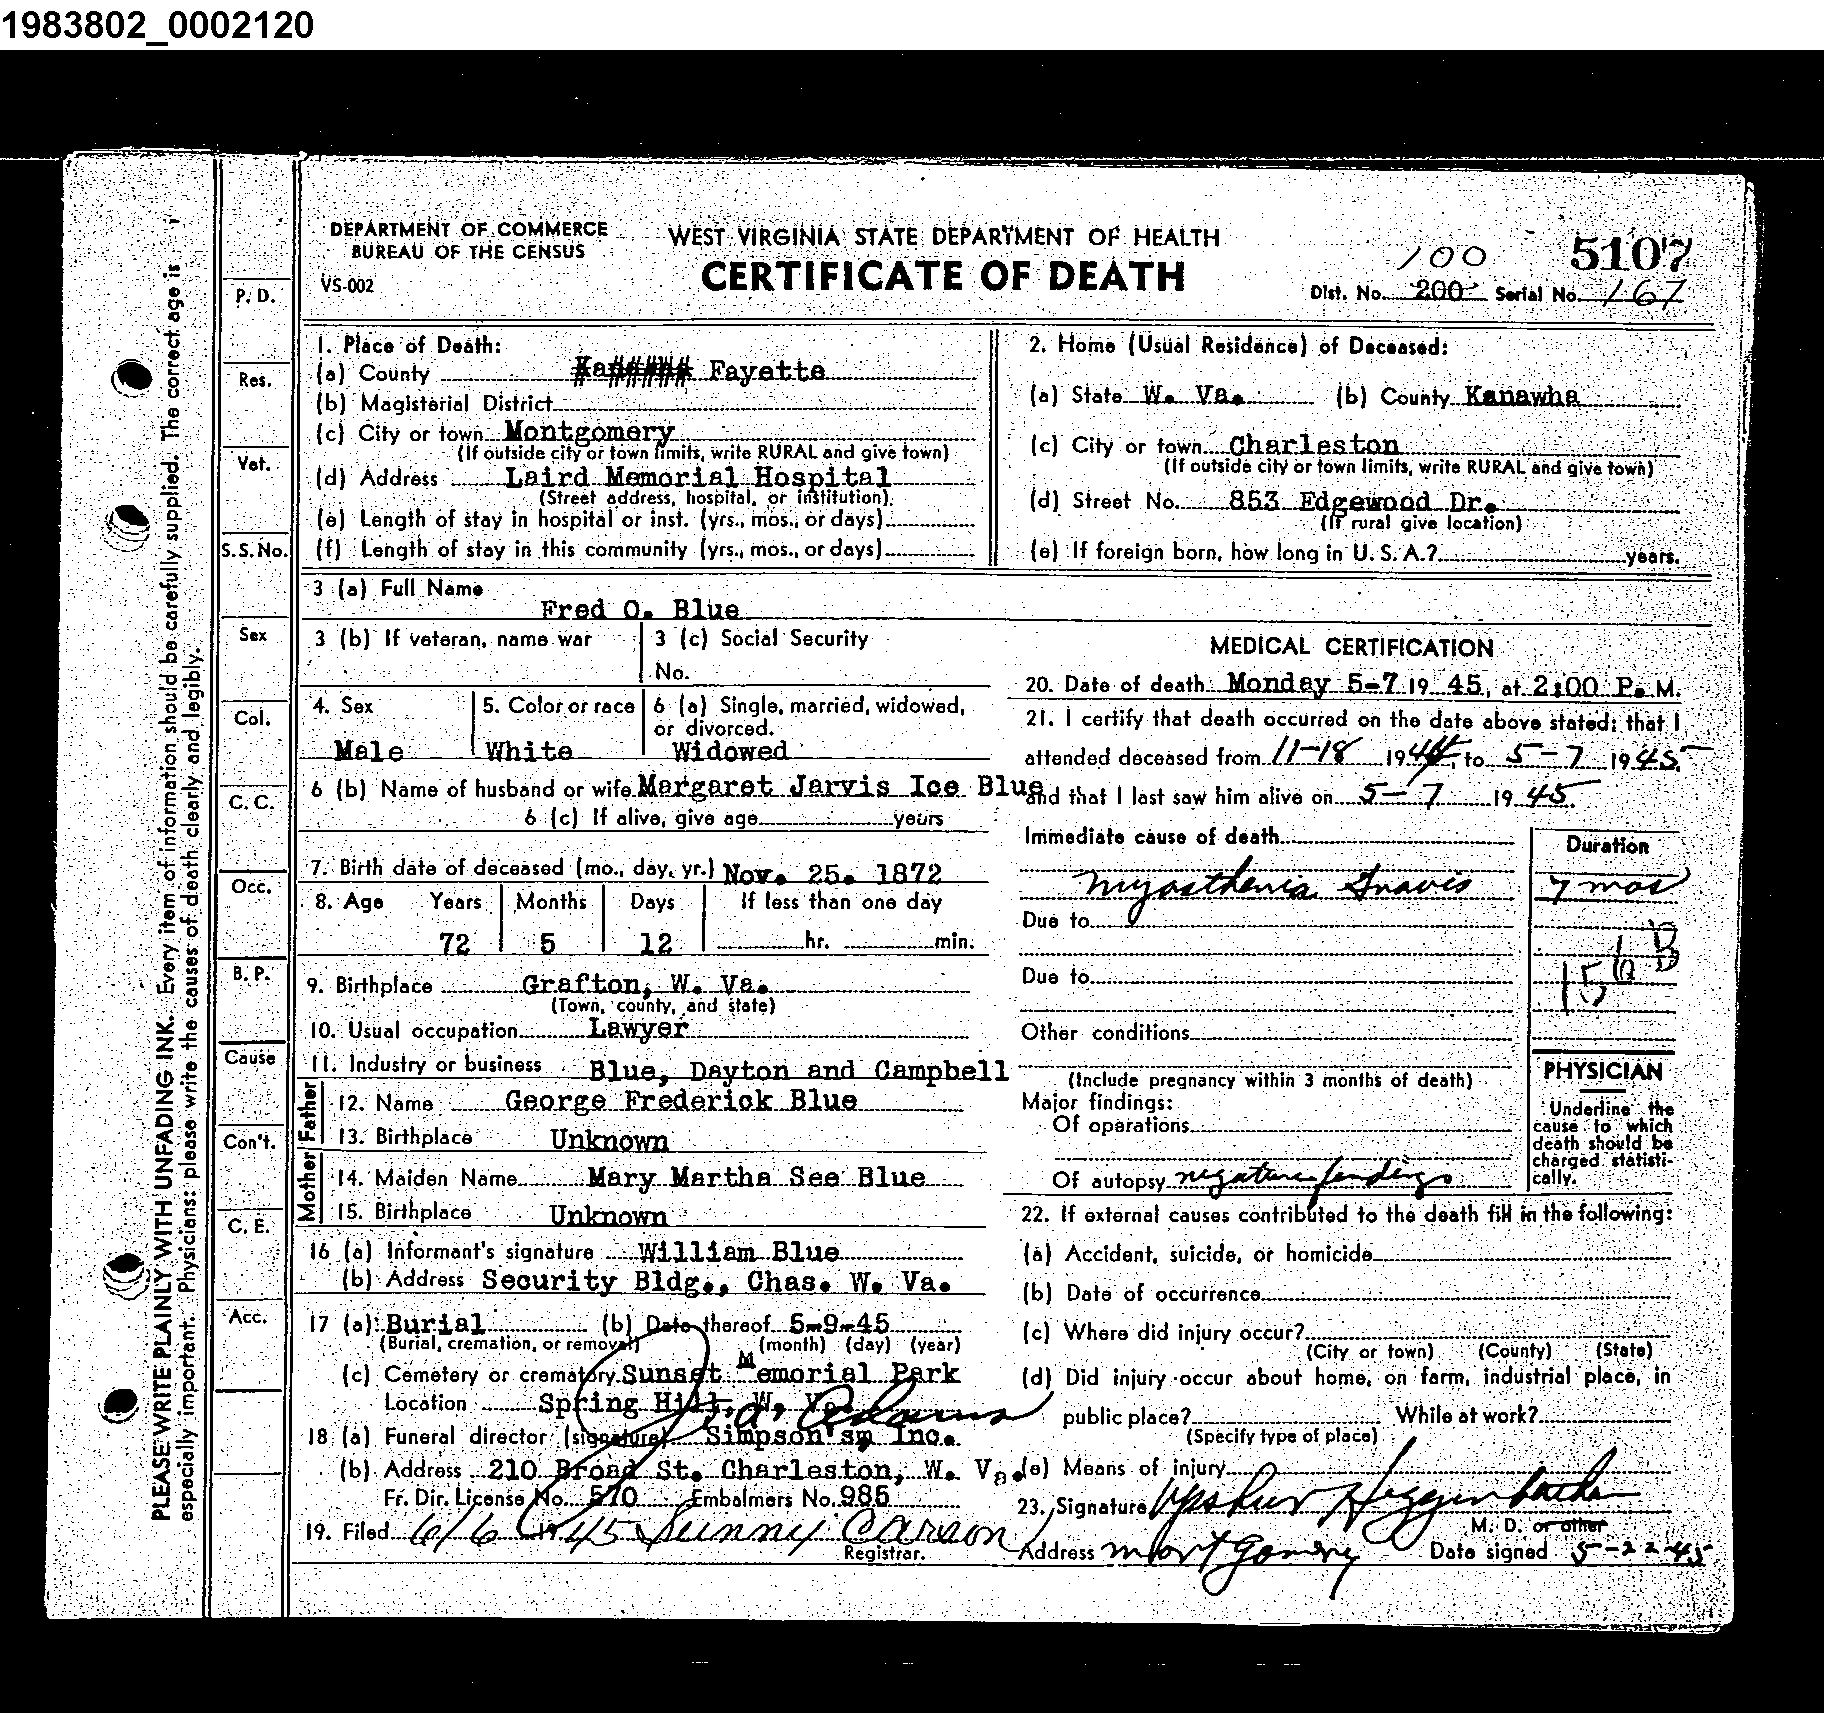 1983802_0002120
DEPARTMENT OF COMMERCE
BUREAU OF THE CENSUS
VS-002
WEST VIRGINIA STATE DEPARTMENT OF HEALTH
CERTIFICATE OF DEATH
100
5107
Dist. No. 200 Serial No. 167
PLEASE WRITE PLAINLY WITH UNFADING INK. Every item of information should be carefully supplied. The correct age is
especially important. Physicians: please write the causes of death clearly and legibly.
P. D.
Res.
Vet.
S.S. No.
Sex
Col.
C. C.
Occ.
B. P.
Cause
Con't.
C. E.
Acc.
1. Place of Death:
(a) County Fayette
(b) Magisterial District
(c) City or town Montgomery
(If outside city or town limits, write RURAL and give town)
(d) Address Laird Memorial Hospital
(Street address, hospital, or institution)
(e) Length of stay in hospital or inst. (yrs., mos., or days)
(f) Length of stay in this community (yrs., mos., or days)
2. Home (Usual Residence) of Deceased:
(a) State W. Va. (b) County Kanawha
(c) City or town Charleston
(If outside city or town limits, write RURAL and give town)
(d) Street No. 853 Edgewood Dr.
(If rural give location)
(e) If foreign born, how long in U. S. A.? years.
3 (a) Full Name
Fred O. Blue
3 (b) If veteran, name war
3 (c) Social Security
No.
4. Sex
Male
5. Color or race
White
6 (a) Single, married, widowed,
or divorced.
Widowed
6 (b) Name of husband or wife Margaret Jarvis Ice Blue
6 (c) If alive, give age years
7. Birth date of deceased (mo., day, yr.) Nov. 25. 1872
8. Age Years Months Days If less than one day
72 5 12 hr. min.
9. Birthplace Grafton, W. Va.
(Town, county, and state)
10. Usual occupation Lawyer
11. Industry or business Blue, Dayton and Campbell
Father
12. Name George Frederick Blue
13. Birthplace Unknown
Mother
14. Maiden Name Mary Martha See Blue
15. Birthplace Unknown
16 (a) Informant's signature William Blue
(b) Address Security Bldg., Chas. W. Va.
17 (a) Burial (b) Date thereof 5-9-45
(Burial, cremation, or removal) (month) (day) (year)
(c) Cemetery or crematory Sunset Memorial Park
Location Spring Hill, W. Va.
Adams
18 (a) Funeral director (signature) Simpson's, Inc.
(b) Address 210 Broad St. Charleston, W. Va.
Fr. Dir. License No. 570 Embalmers No. 985
19. Filed 6/6 1945 Sunny Carson
Registrar.
MEDICAL CERTIFICATION
20. Date of death Monday 5-7 19 45, at 2:00 P. M.
21. I certify that death occurred on the date above stated; that I
attended deceased from 11-18 1944, to 5-7 1945,
and that I last saw him alive on 5-7 19 45.
Immediate cause of death
Duration
Myasthenia Gravis 7 mos
Due to
Due to
Other conditions
(Include pregnancy within 3 months of death)
Major findings:
Of operations
Of autopsy negative findings
PHYSICIAN
Underline the
cause to which
death should be
charged statisti-
cally.
22. If external causes contributed to the death fill in the following:
(a) Accident, suicide, or homicide
(b) Date of occurrence
(c) Where did injury occur?
(City or town) (County) (State)
(d) Did injury occur about home, on farm, industrial place, in
public place? While at work?
(Specify type of place)
(e) Means of injury
23. Signature Upshur Higginbotham
M. D. or other
Address Montgomery Date signed 5-22-45